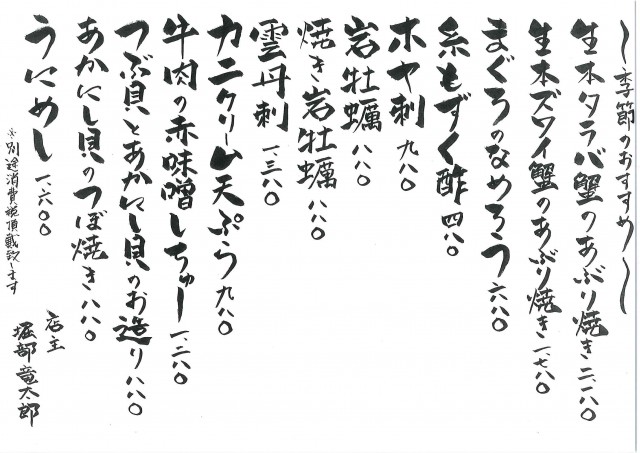 ～季節のおすすめ～
生本タラバ蟹のあぶり焼き 二、一八〇
生本ズワイ蟹のあぶり焼き 一、七八〇
まぐろのなめろう 六八〇
糸もずく酢 四八〇
ホヤ刺 九八〇
岩牡蠣 八八〇
焼き岩牡蠣 八八〇
雲丹刺 一、三八〇
カニクリーム天ぷら 九八〇
牛肉の赤味噌しちゅー 一、二八〇
つぶ貝とあかにし貝のお造り 八八〇
あかにし貝のつぼ焼き 八八〇
うにめし 一、六〇〇
※別途消費税頂戴致します
店主
堀部竜太郎